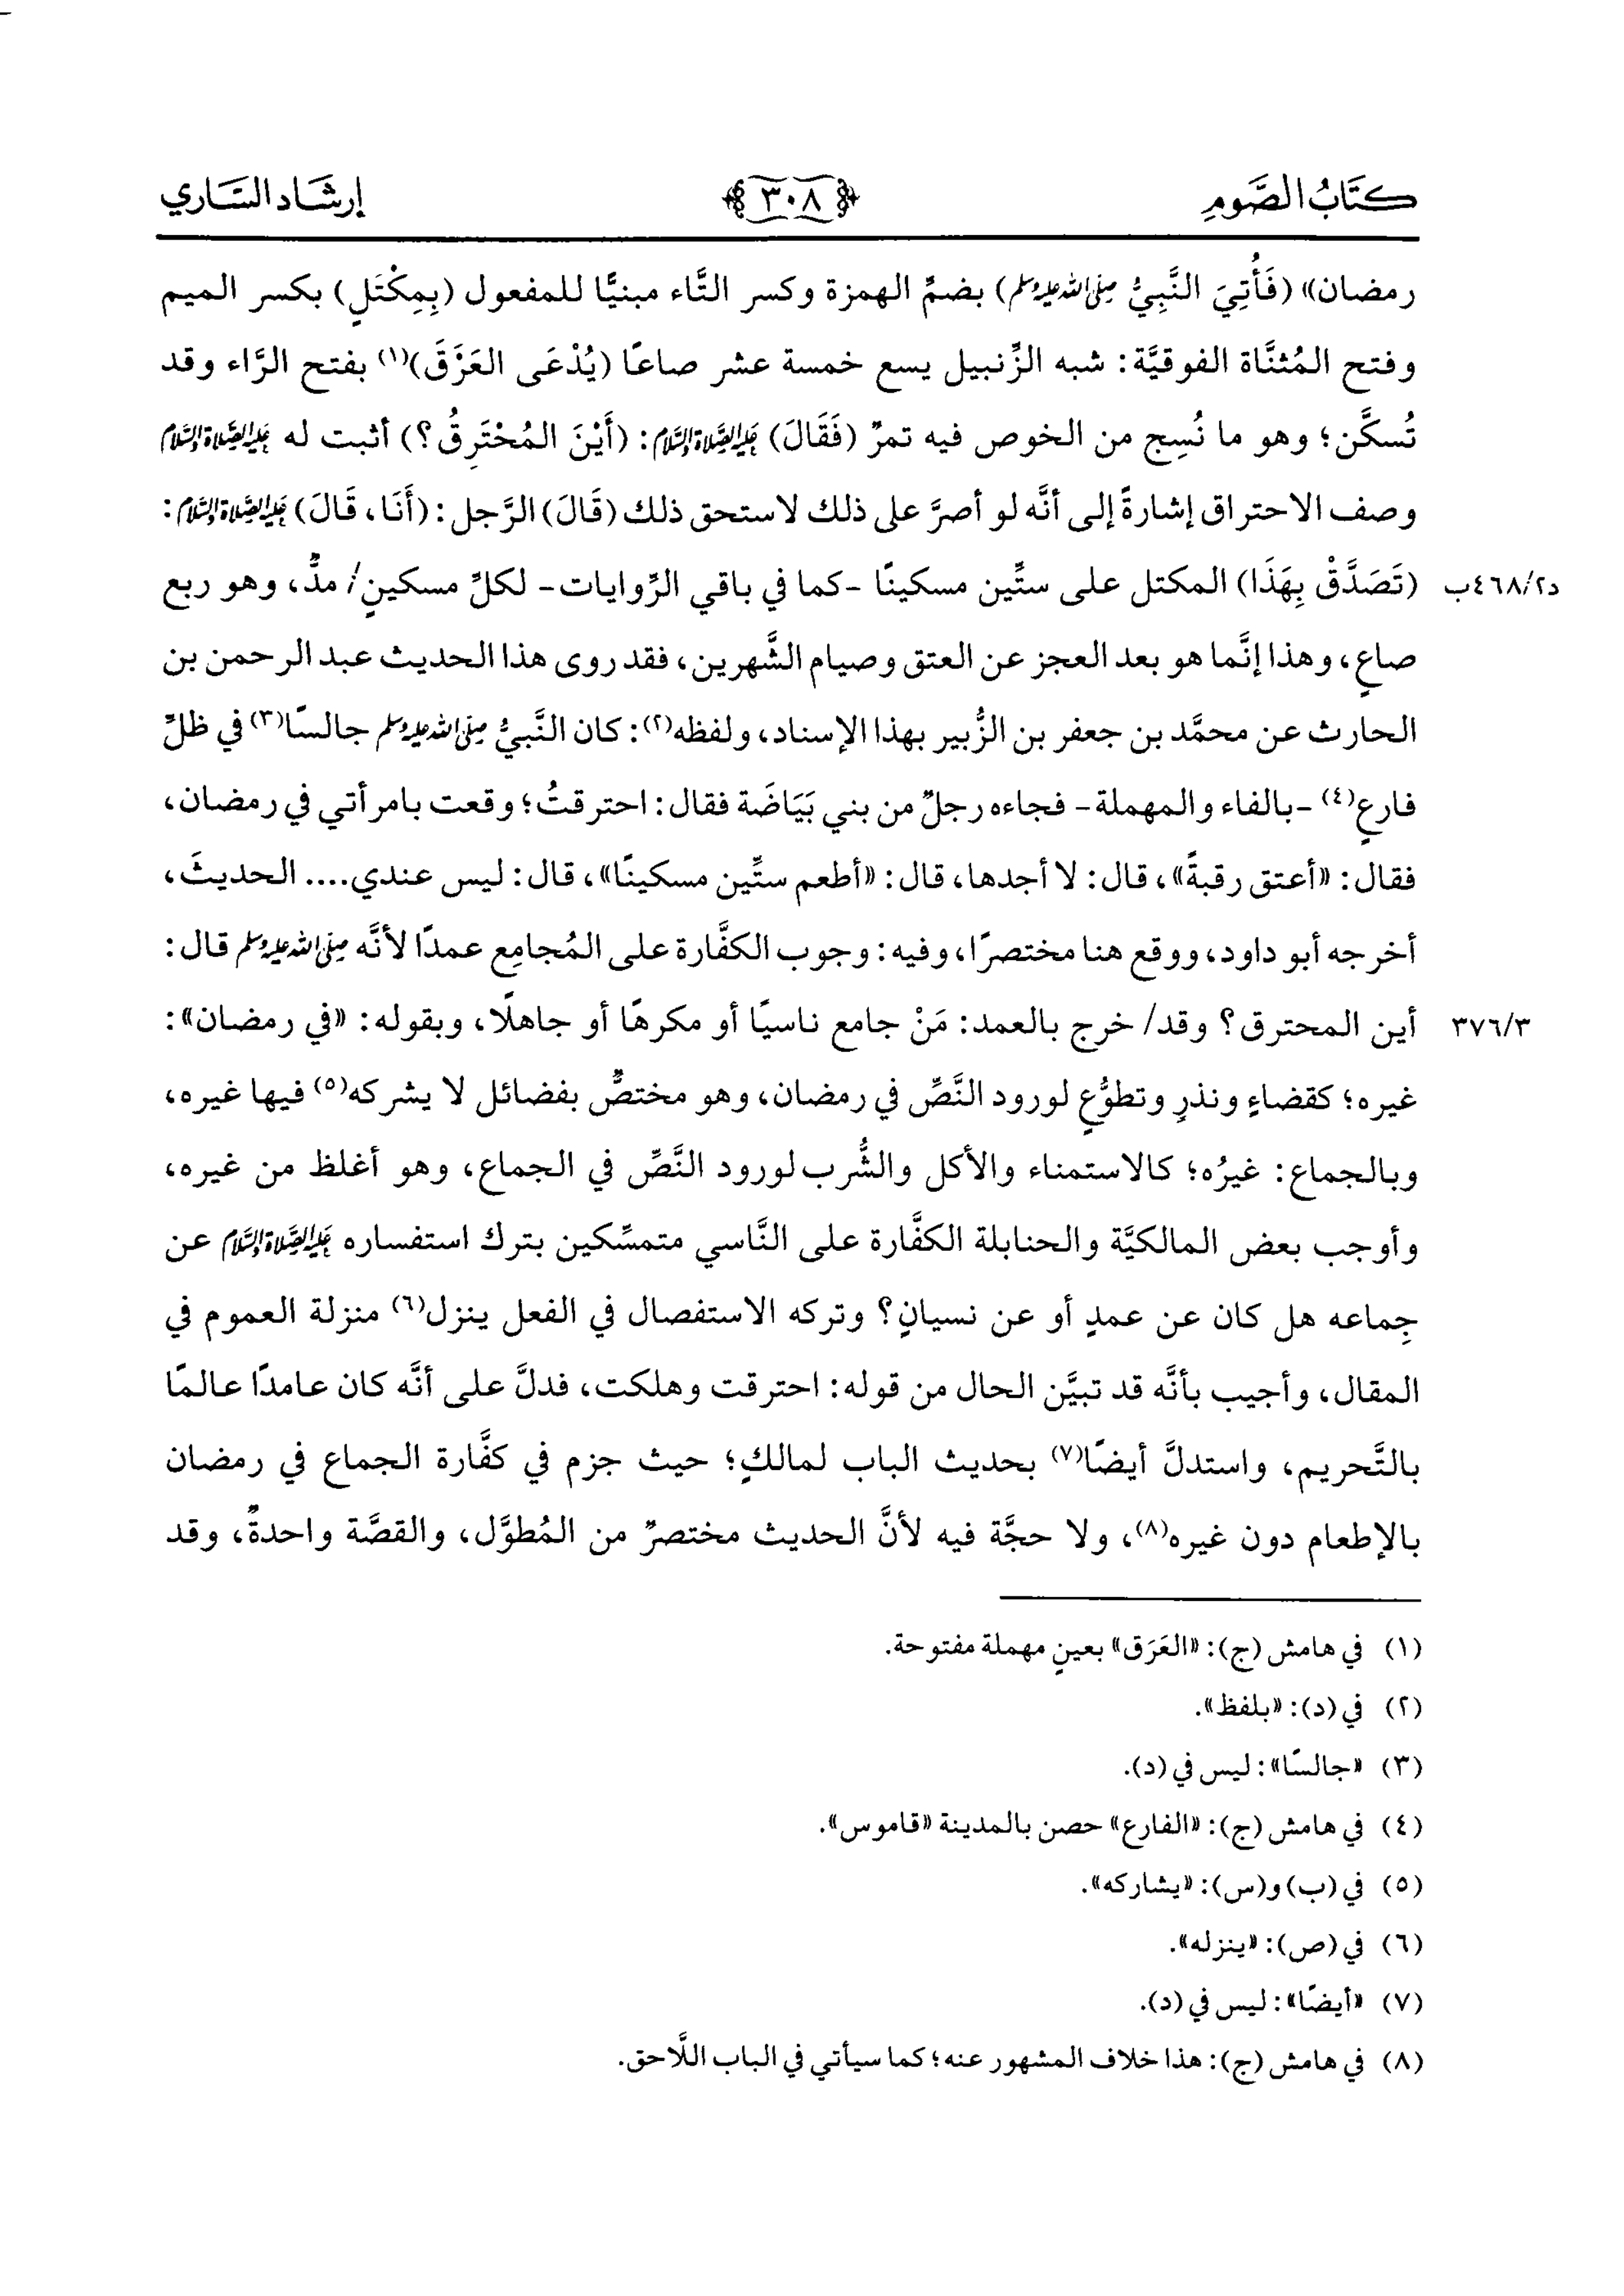 كتاب الصَّومِ ٣٠٨ إرشاد السَّاري
رمضان» (فَأُتِيَ النَّبِيُّ صلى الله عليه وسلم) بضمِّ الهمزة وكسر التَّاء مبنيًّا للمفعول (بِمِكْتَلٍ) بكسر الميم
وفتح المُثنَّاة الفوقيَّة: شبه الزِّنبيل يسع خمسة عشر صاعًا (يُدْعَى العَرَْقَ)(١) بفتح الرَّاء وقد
تُسكَّن؛ وهو ما نُسِج من الخوص فيه تمرٌ (فَقَالَ) عليه الصلاة والسلام: (أَيْنَ المُحْتَرِقُ؟) أثبت له عليه الصلاة والسلام
وصف الاحتراق إشارةً إلى أنَّه لو أصرَّ على ذلك لاستحق ذلك (قَالَ) الرَّجل: (أَنَا، قَالَ) عليه الصلاة والسلام:
د٤٦٨/٢ب (تَصَدَّقْ بِهَذَا) المكتل على ستِّين مسكينًا -كما في باقي الرِّوايات- لكلِّ مسكينٍ/ مدٌّ، وهو ربع
صاعٍ، وهذا إنَّما هو بعد العجز عن العتق وصيام الشَّهرين، فقد روى هذا الحديث عبد الرحمن بن
الحارث عن محمَّد بن جعفر بن الزُّبير بهذا الإسناد، ولفظه(٢): كان النَّبيُّ صلى الله عليه وسلم جالسًا(٣) في ظلِّ
فارعٍ(٤) -بالفاء والمهملة- فجاءه رجلٌ من بني بَيَاضَة فقال: احترقتُ؛ وقعت بامرأتي في رمضان،
فقال: «أعتق رقبةً»، قال: لا أجدها، قال: «أطعم ستِّين مسكينًا»، قال: ليس عندي.... الحديثَ،
أخرجه أبو داود، ووقع هنا مختصرًا، وفيه: وجوب الكفَّارة على المُجامِع عمدًا لأنَّه صلى الله عليه وسلم قال:
٣٧٦/٣ أين المحترق؟ وقد/ خرج بالعمد: مَنْ جامع ناسيًا أو مكرهًا أو جاهلًا، وبقوله: «في رمضان»:
غيره؛ كقضاءٍ ونذرٍ وتطوُّعٍ لورود النَّصِّ في رمضان، وهو مختصٌّ بفضائل لا يشركه(٥) فيها غيره،
وبالجماع: غيرُه؛ كالاستمناء والأكل والشُّرب لورود النَّصِّ في الجماع، وهو أغلظ من غيره،
وأوجب بعض المالكيَّة والحنابلة الكفَّارة على النَّاسي متمسِّكين بترك استفساره عليه الصلاة والسلام عن
جِماعه هل كان عن عمدٍ أو عن نسيانٍ؟ وتركه الاستفصال في الفعل ينزل(٦) منزلة العموم في
المقال، وأجيب بأنَّه قد تبيَّن الحال من قوله: احترقت وهلكت، فدلَّ على أنَّه كان عامدًا عالمًا
بالتَّحريم، واستدلَّ أيضًا(٧) بحديث الباب لمالكٍ؛ حيث جزم في كفَّارة الجماع في رمضان
بالإطعام دون غيره(٨)، ولا حجَّة فيه لأنَّ الحديث مختصرٌ من المُطوَّل، والقصَّة واحدةٌ، وقد
(١) في هامش (ج): «العَرَق» بعينٍ مهملة مفتوحة.
(٢) في (د): «بلفظ».
(٣) «جالسًا»: ليس في (د).
(٤) في هامش (ج): «الفارع» حصن بالمدينة «قاموس».
(٥) في (ب) و(س): «يشاركه».
(٦) في (ص): «ينزله».
(٧) «أيضًا»: ليس في (د).
(٨) في هامش (ج): هذا خلاف المشهور عنه؛ كما سيأتي في الباب اللَّاحق.